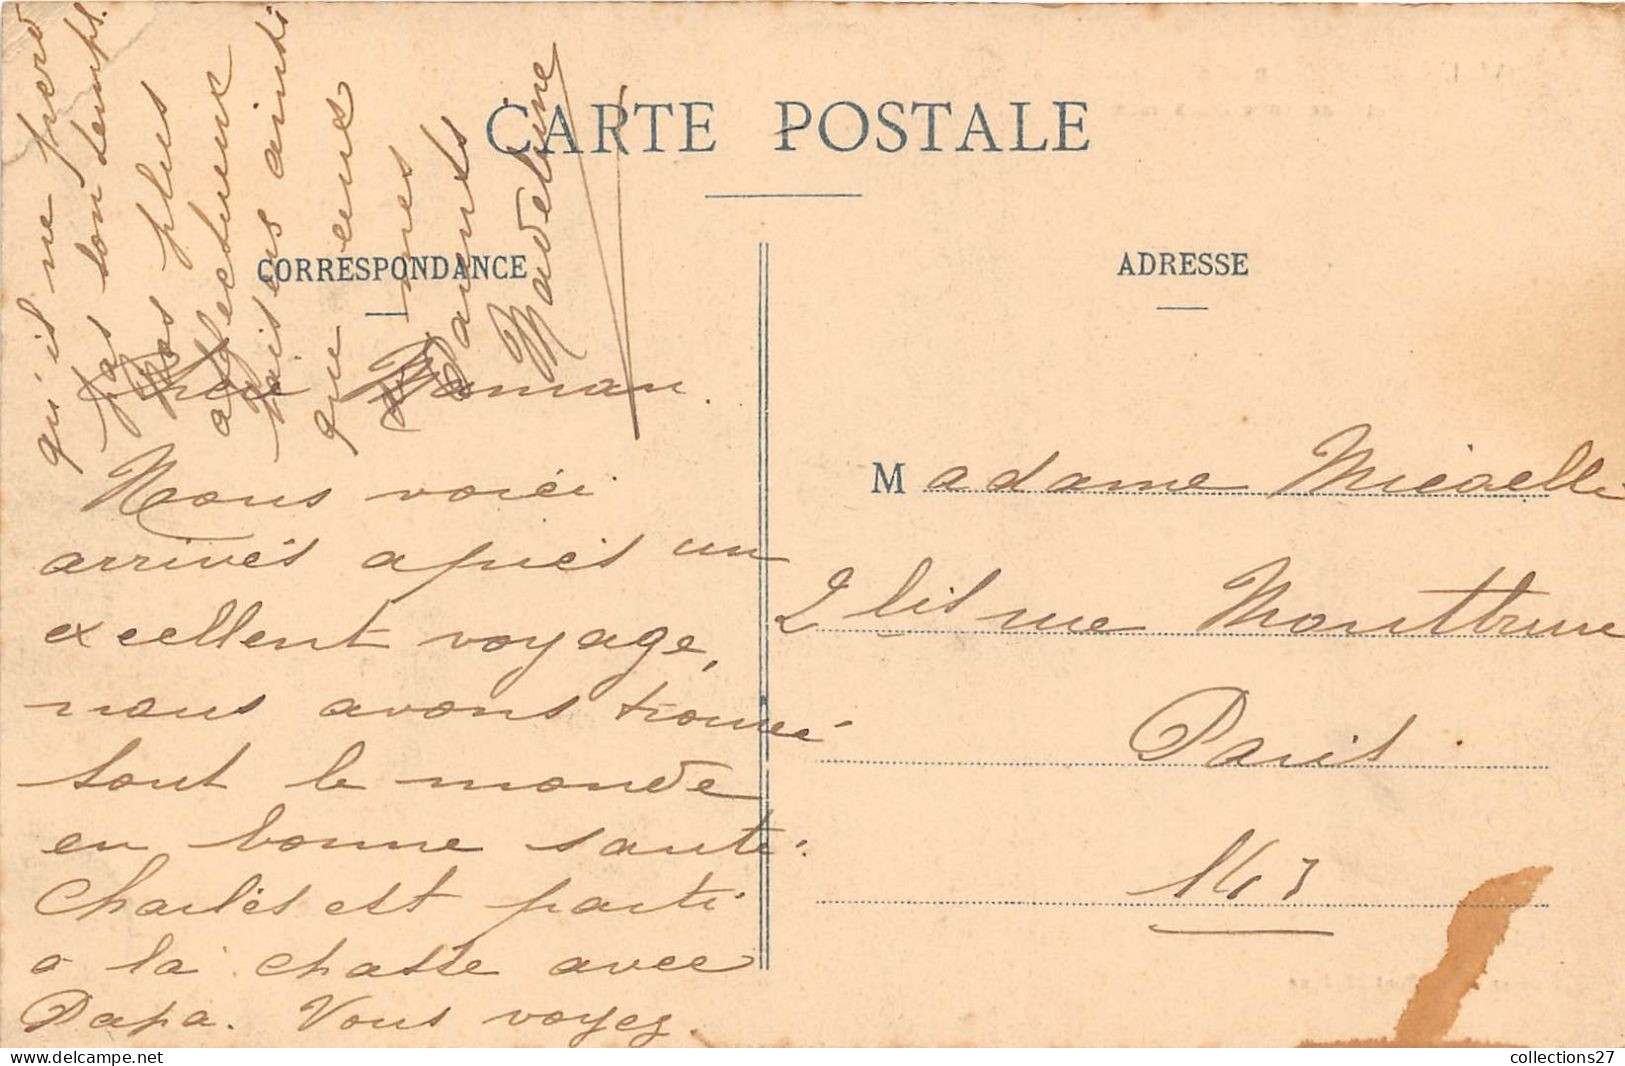 CARTE POSTALE
CORRESPONDANCE
ADRESSE
Chère Maman.
Nous voici
arrivés après un
excellent voyage,
nous avons trouvé
tout le monde
en bonne santé.
Charles est parti
a la chasse avec
Papa. Vous voyez
qu'il ne perd
pas son temps.
Nos plus
affectueux
baisers ainsi
que ceux
de mes
Parents
Madeleine
Madame
2 bis rue
Paris
collections27